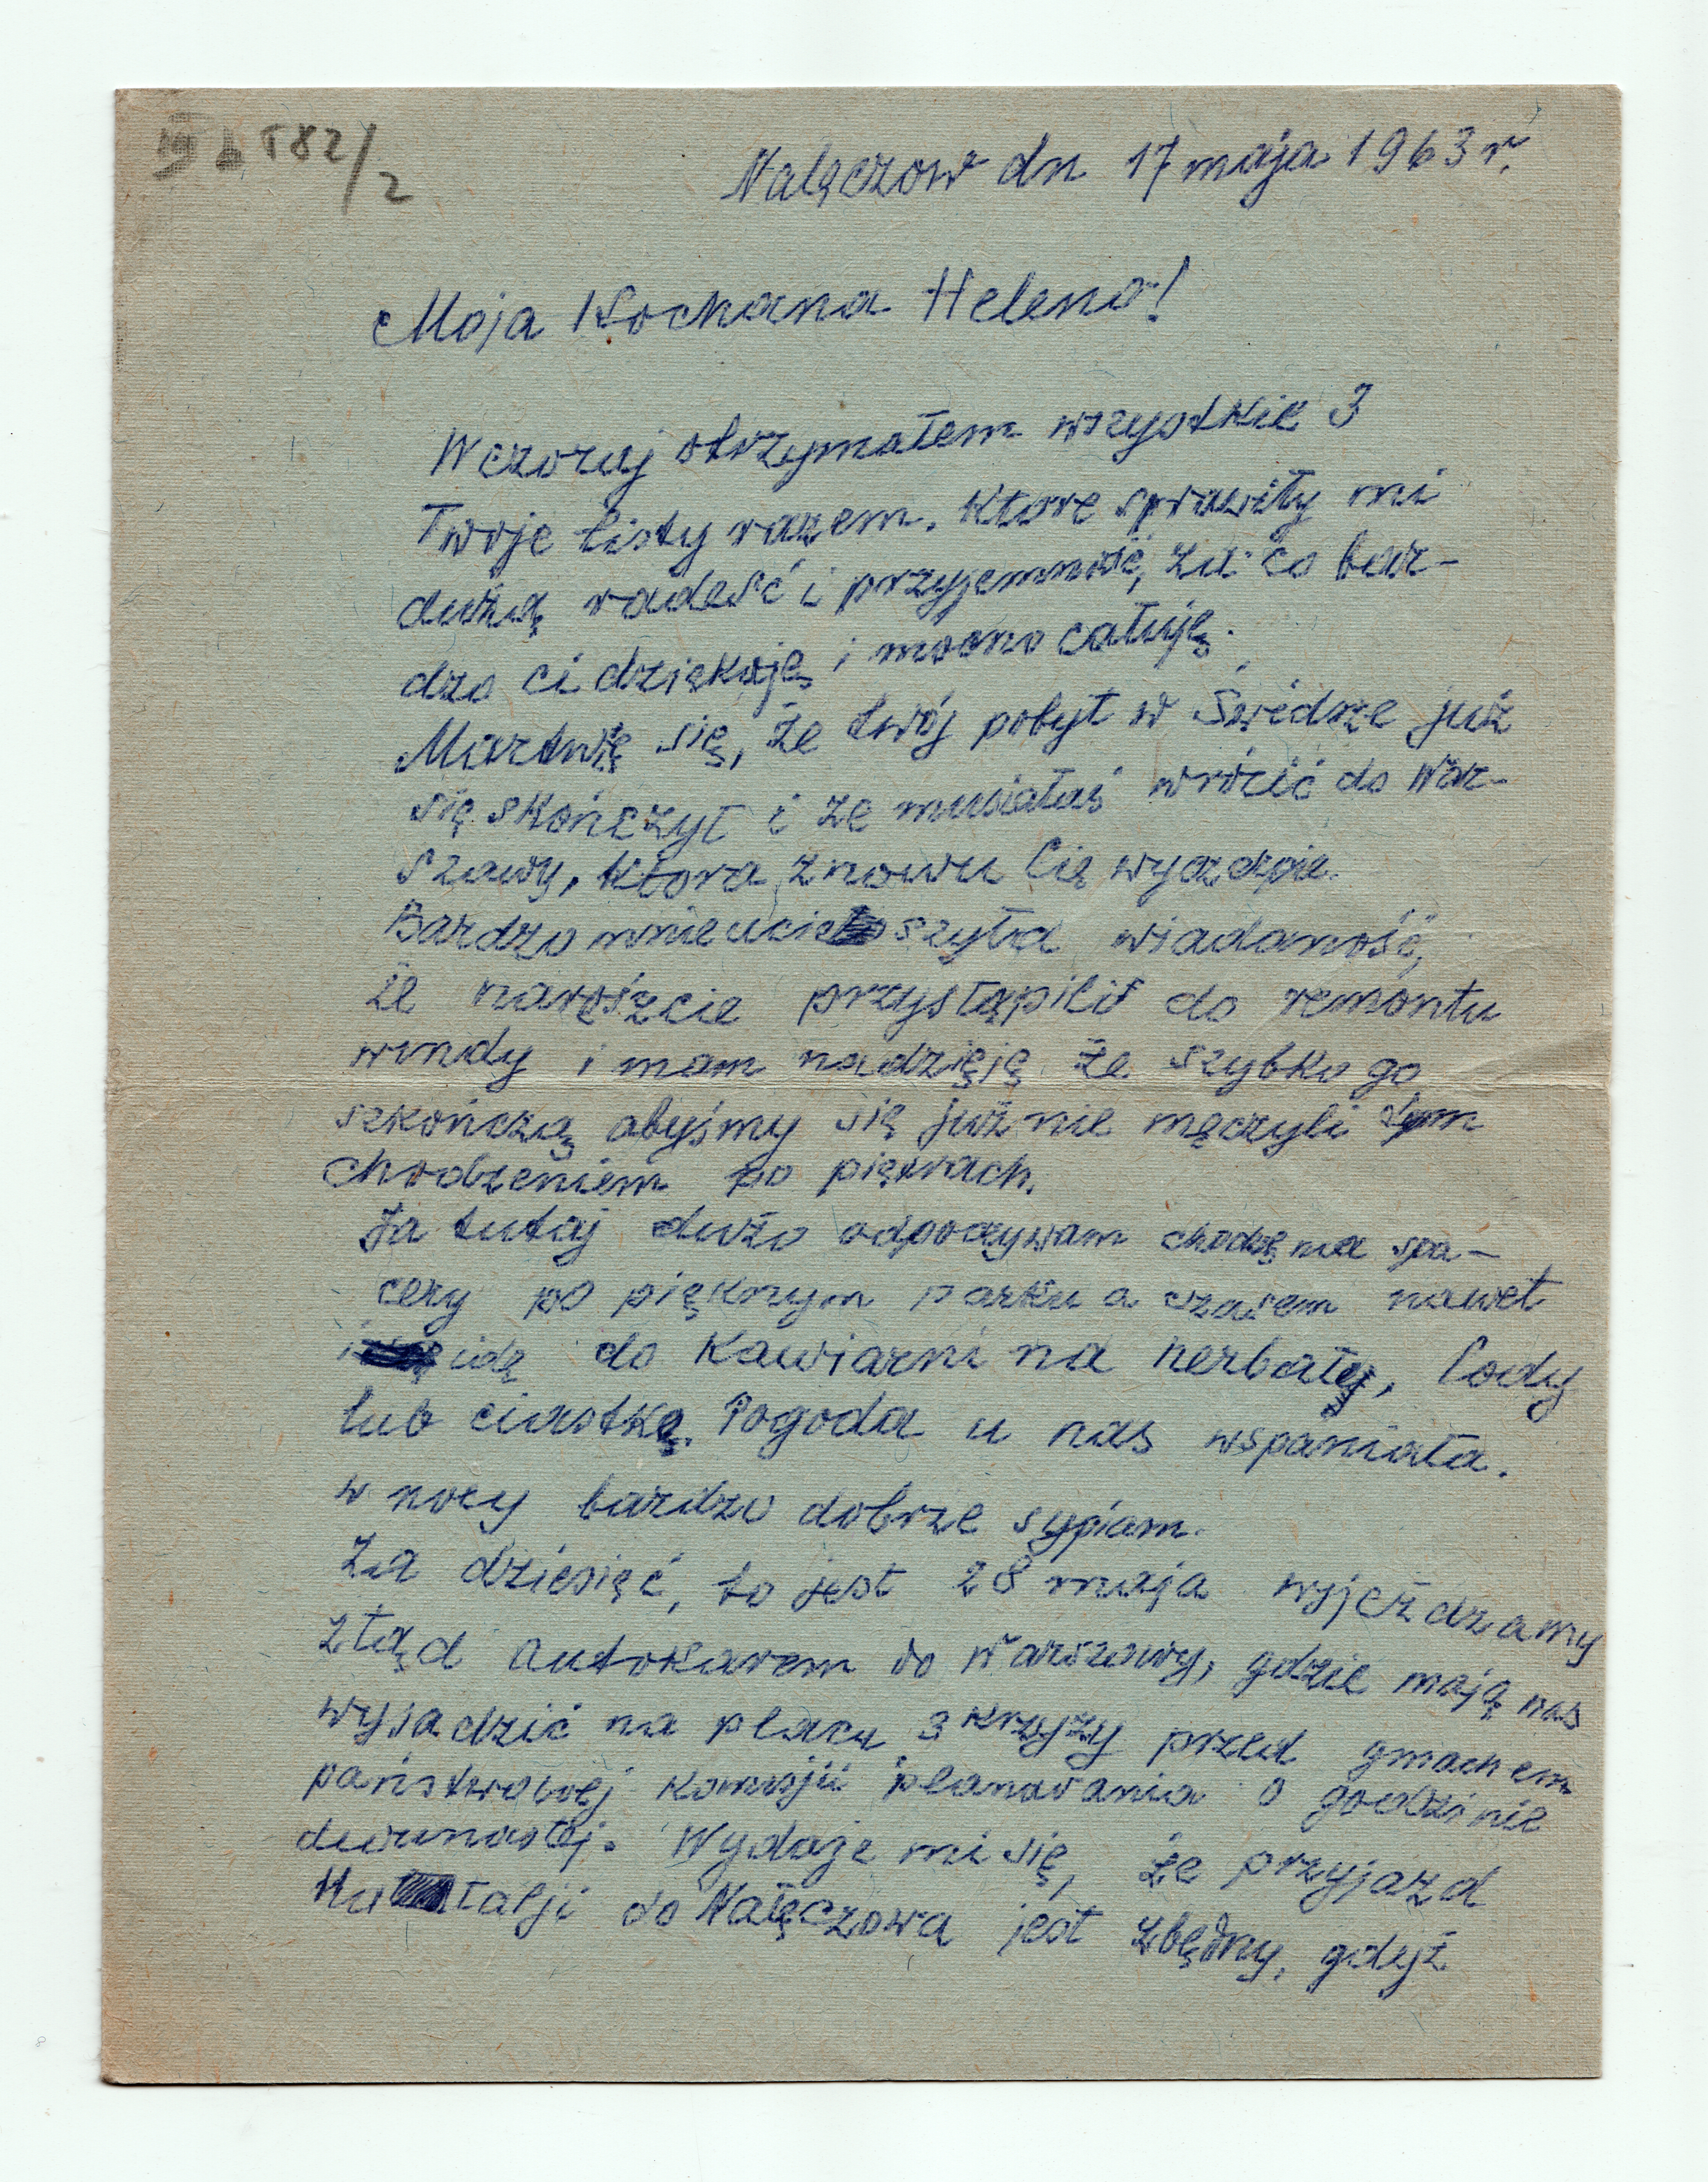 582/2
Nalęczow dn 17 maja 1963 r.
Moja Kochana Heleno!
Wczoraj otrzymałem wszystkie 3
Twoje listy razem. Ktore sprawiły mi
dużą radość i przyjemność, za co bar-
dzo ci dziękuję i mocno całuję.
Martwię się, że twój pobyt w Świdrze już
się skończył i że musiałaś wrócić do War-
szawy, ktora znowu Cię wyczerpie.
Bardzo mnie ucieszyła wiadomość,
że nareszcie przystąpili do remontu
windy i mam nadzięję że szybko go
szkończą abyśmy się już nie męczyli tym
chodzeniem po piętrach.
Ja tutaj dużo odpoczywam chodzę na spa-
cery po pięknym parku a czasem nawet
idę do Kawiarni na herbatę, lody
lub ciastkę. Pogoda u nas wspaniała.
w nocy bardzo dobrze sypiam.
Za dziesięć, to jest 28 maja wyjeżdzamy
ztąd autokarem do Warszawy, gdzie mają nas
wysadzić na placu 3 Krzyzy przed gmachem
państwowej komisji planowania o godzinie
dwunastej. Wydaje mi się, że przyjazd
Natalji do Nałęczowa jest zbędny, gdyż